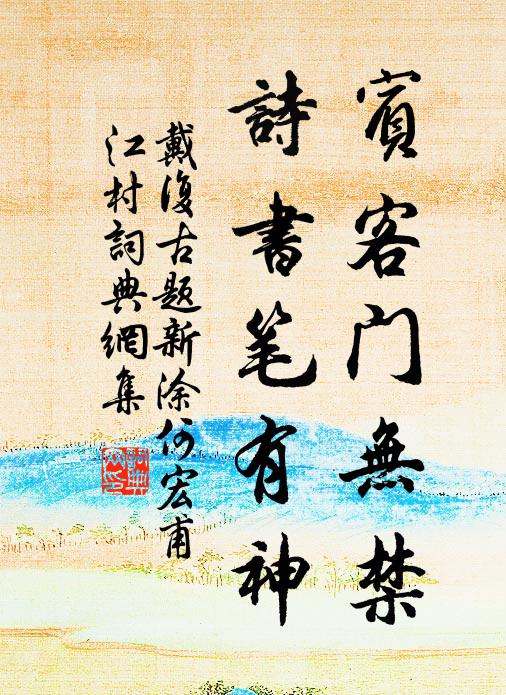 賓客門無禁
詩書笔有神
戴復古題新涂何宏甫
江村詞典網集